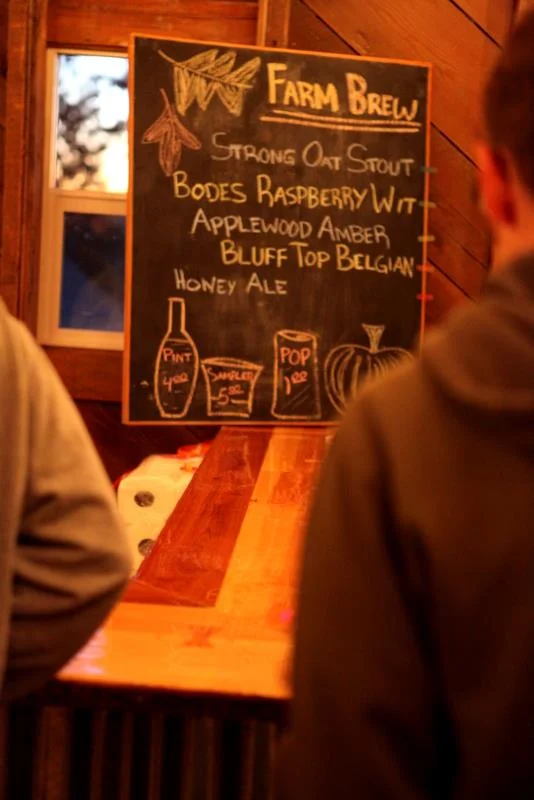 FARM BREW
STRONG OAT STOUT
BODES RASPBERRY WIT
APPLEWOOD AMBER
BLUFF TOP BELGIAN
HONEY ALE
PINT
4.00
SAMPLER
5.00
POP
1.00